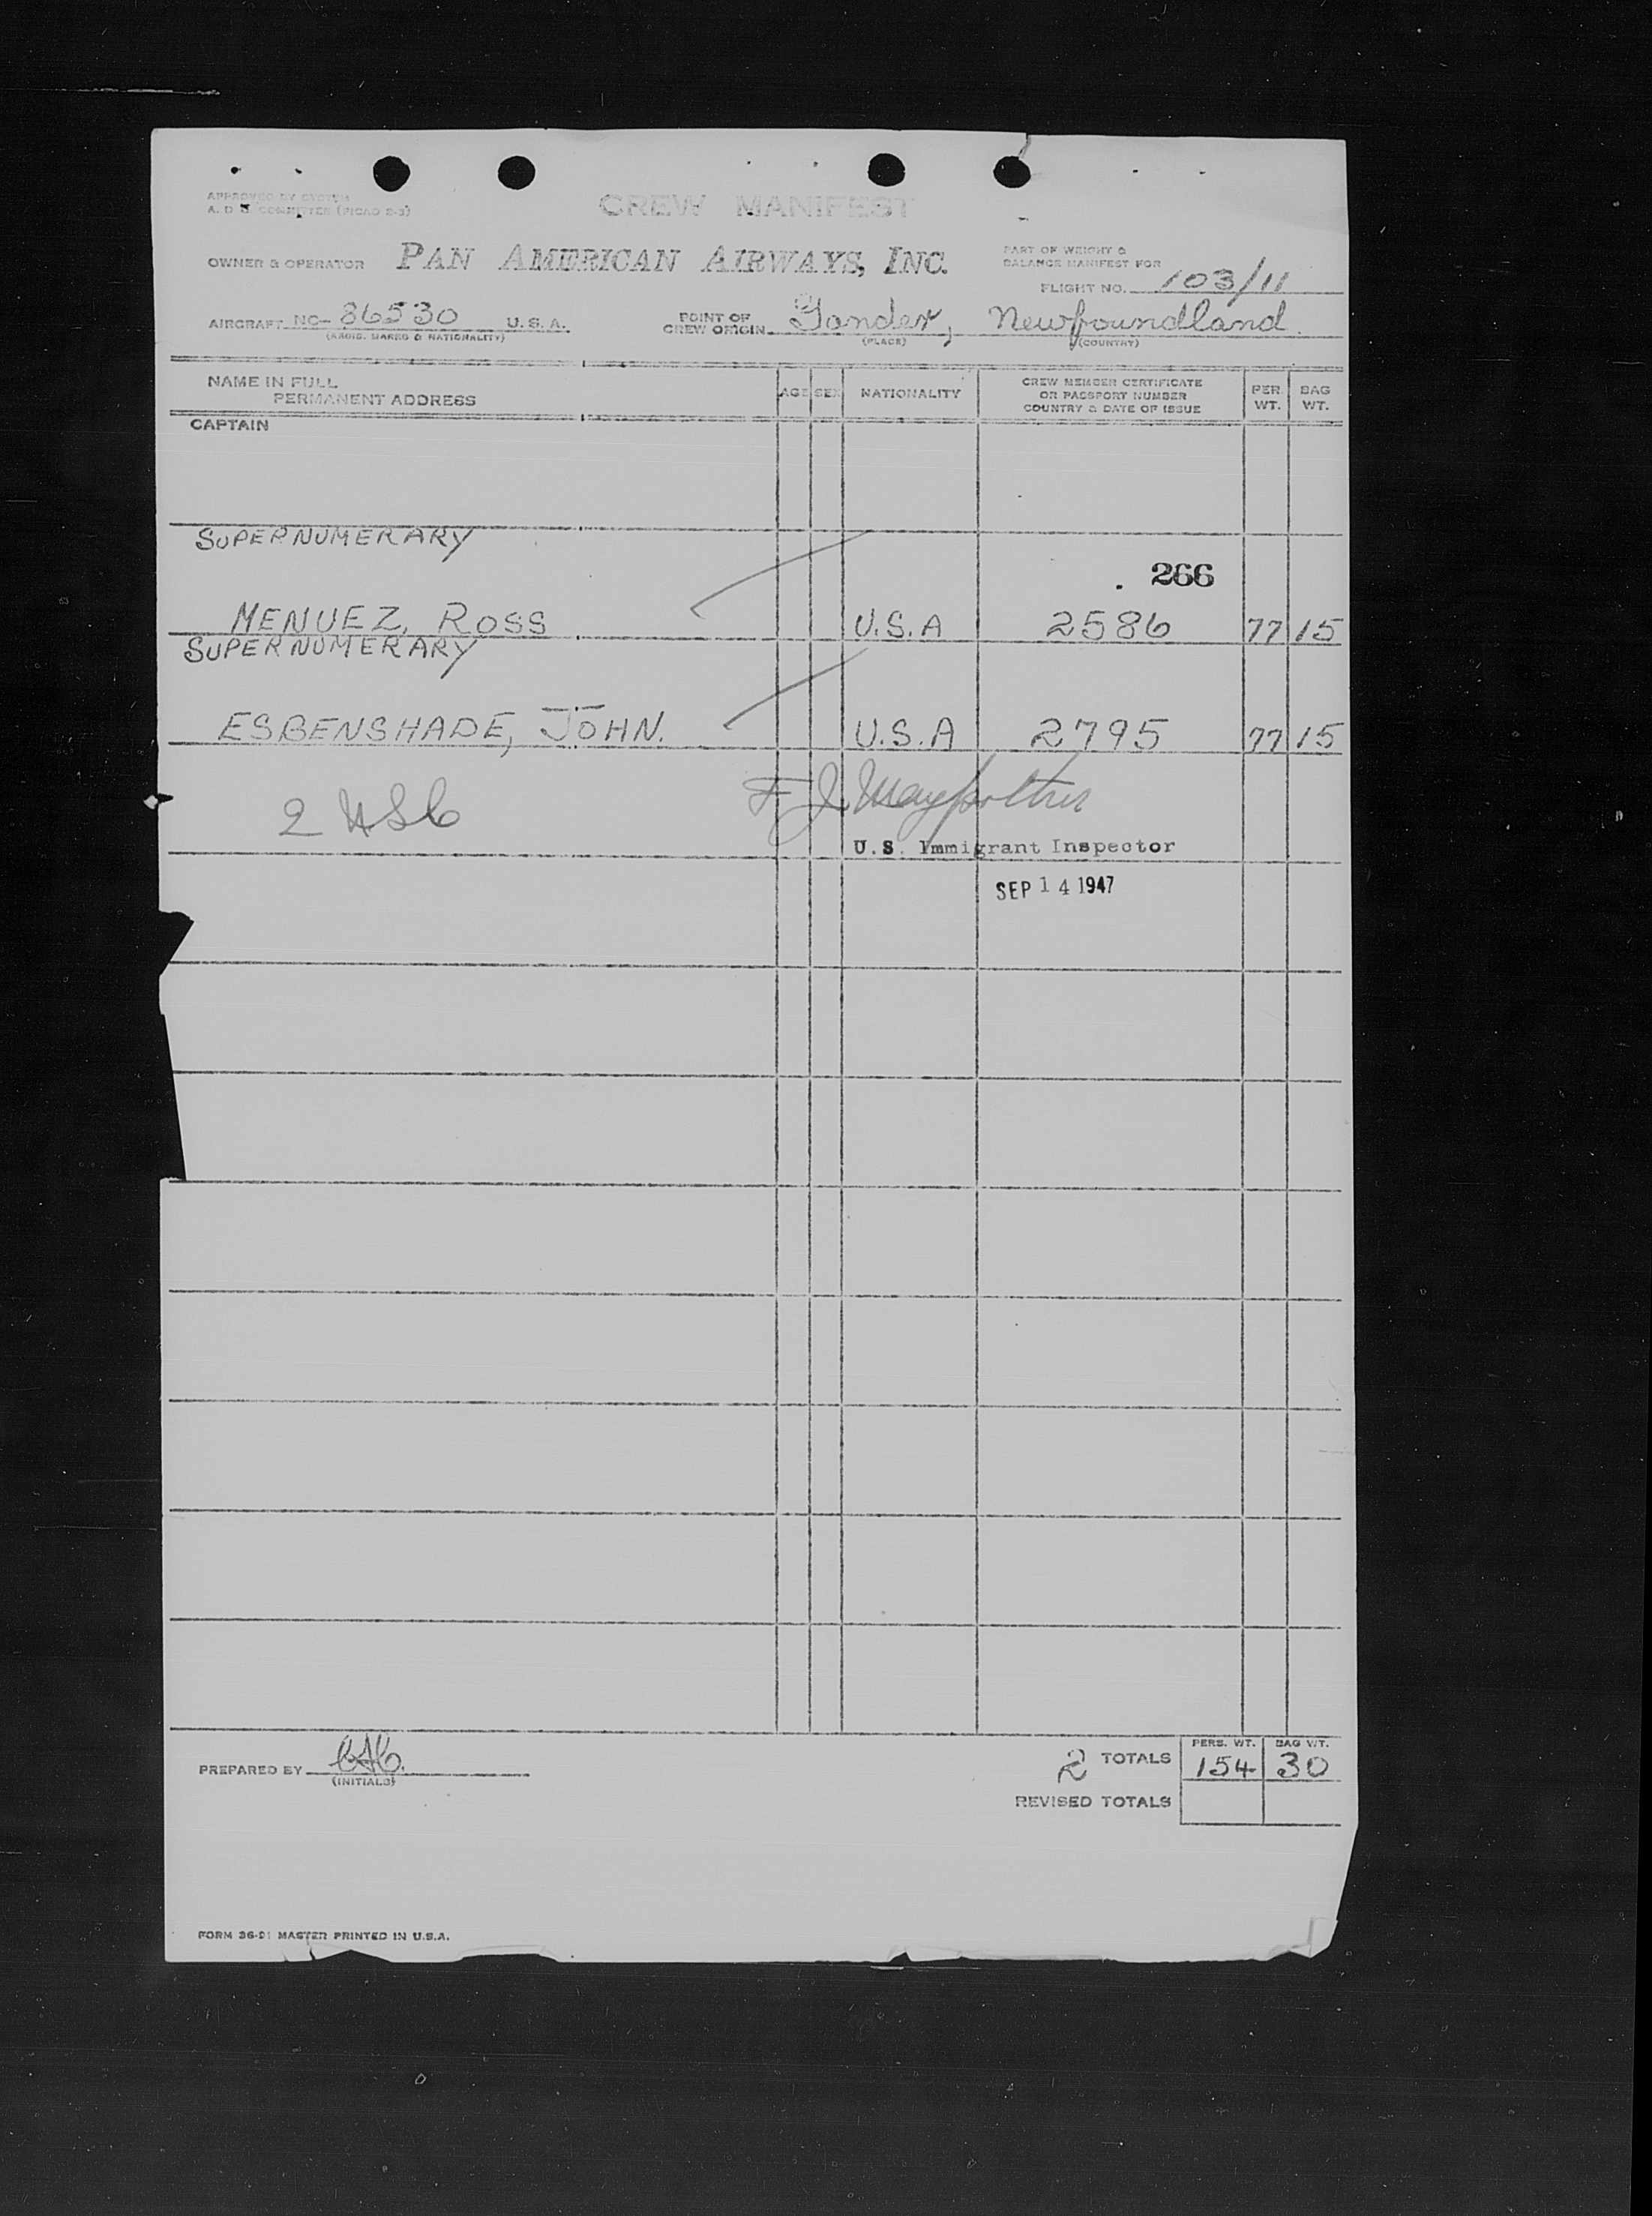 APPROVED BY SYSTEM
A. D. S. COMMITTEE (PICAO 2-3)
CREW MANIFEST
OWNER & OPERATOR PAN AMERICAN AIRWAYS, INC.
PART OF WEIGHT &
BALANCE MANIFEST FOR
FLIGHT NO. 103/11
AIRCRAFT NC- 86530 U. S. A.
(REGIS. MARKS & NATIONALITY)
POINT OF
CREW ORIGIN Gander, Newfoundland.
(PLACE) (COUNTRY)
NAME IN FULL
PERMANENT ADDRESS
AGE SEX NATIONALITY
CREW MEMBER CERTIFICATE
OR PASSPORT NUMBER
COUNTRY & DATE OF ISSUE
PER. WT.
BAG WT.
CAPTAIN
SUPERNUMERARY
266
MENUEZ, ROSS U.S.A 2586 77 15
SUPERNUMERARY
ESBENSHADE, JOHN. U.S.A 2795 77 15
2 USC
F J
U.S. Immigrant Inspector
SEP 14 1947
PREPARED BY
(INITIALS)
2 TOTALS
PERS. WT. BAG WT.
154 30
REVISED TOTALS
FORM 36-91 MASTER PRINTED IN U.S.A.